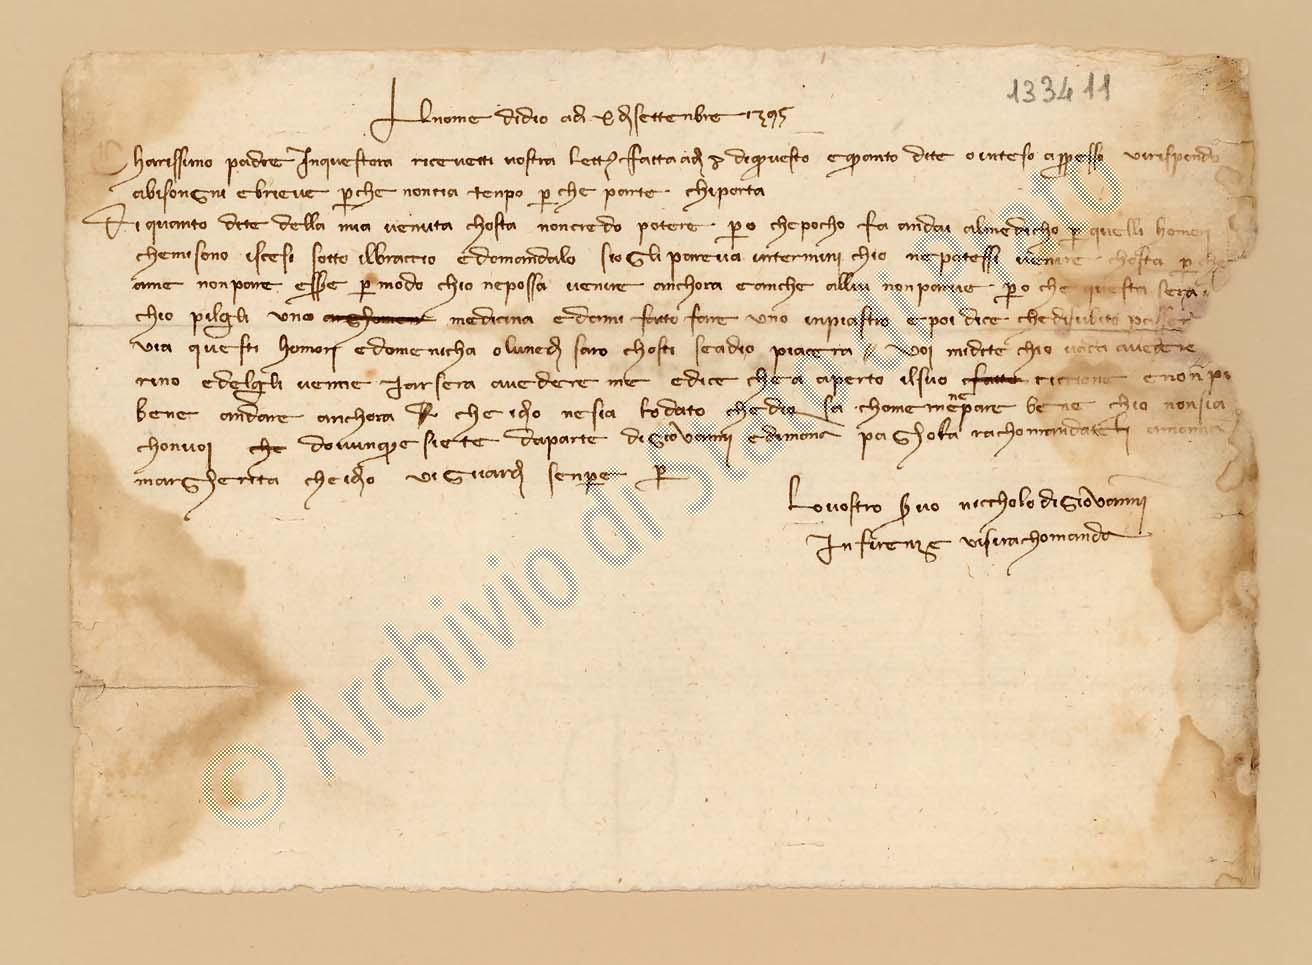 133411
Al nome didio adi x disettenbre 1395
Charissimo padre Inquestora ricevetti vostra lettera fatta adi di questo e quanto dite o inteso appresso virispondo
abisongni e brieve perche noncia tenpo perche parte chiporta
Di quanto dite della mia venuta chosta noncredo potere pero chepocho fa andai almedicho per quelli homori
chemisono iscesi sotto ilbraccio e domandalo seglipareva intermini chio nepotessi venire chosta perche
ame nonpare essere permodo chio nepossa venire anchora e anche allui nonparve pero che questa sera
chio pilgli una medicina e dami fatto fare uno inpiastro e poi dice chedisubito
via questi homori e domenicha o lunedi saro chosti seadio piacera // Voi midite chio vada avedere
rino e delgli venne iarsera avedere me e dice che a aperto ilsuo e non
bene andare anchora che idio nesia lodato chedio sa chome mene pare bene chio nonsia
chonvoi che dovunque siete daparte digiovanni e dimona pagholo rachomandateti amonna
margherita che idio vi guardi senpre per
Lo vostro servo niccholo digiovanni
In firenze visirachomanda
© Archivio di Stato di Prato